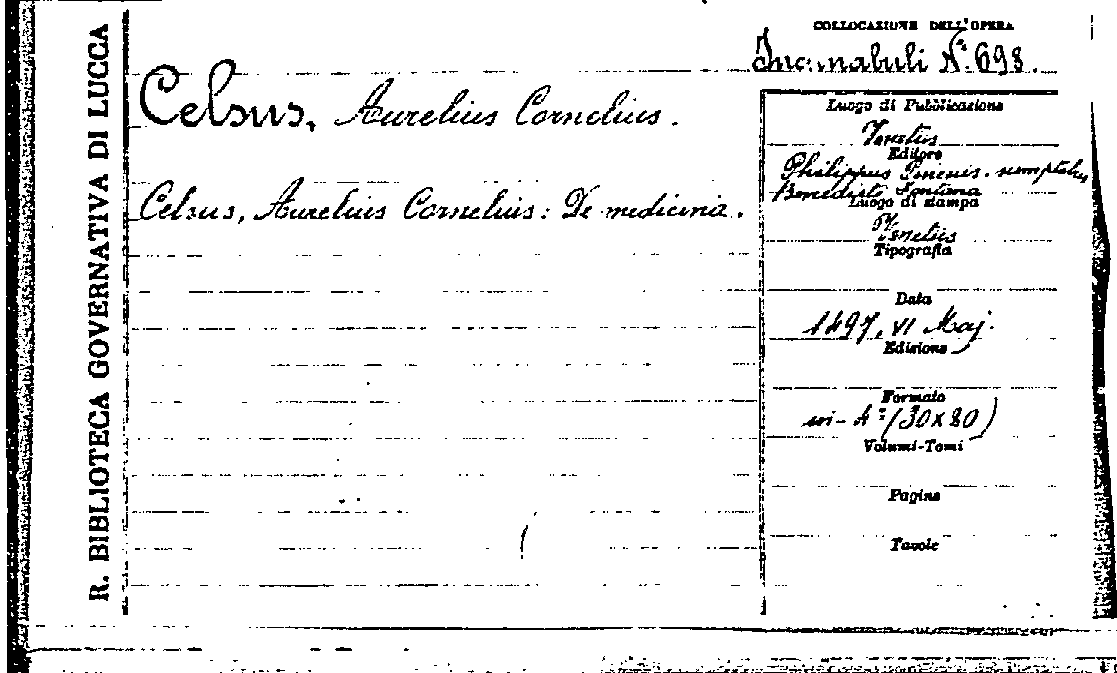 R. BIBLIOTECA GOVERNATIVA DI LUCCA
COLLOCAZIONE DELL'OPERA
Incunabuli N.º 698.
Celsus, Aurelius Cornelius.
Celsus, Aurelius Cornelius: De medicina.
Luogo di Pubblicazione
Venetiis
Editore
Philippus Pincius. sumptibus
Benedicti Fontana
Luogo di stampa
Venetiis
Tipografia
Data
1497, VI Maj.
Edizione
Formato
in-4º (30x20)
Volumi-Tomi
Pagine
Tavole